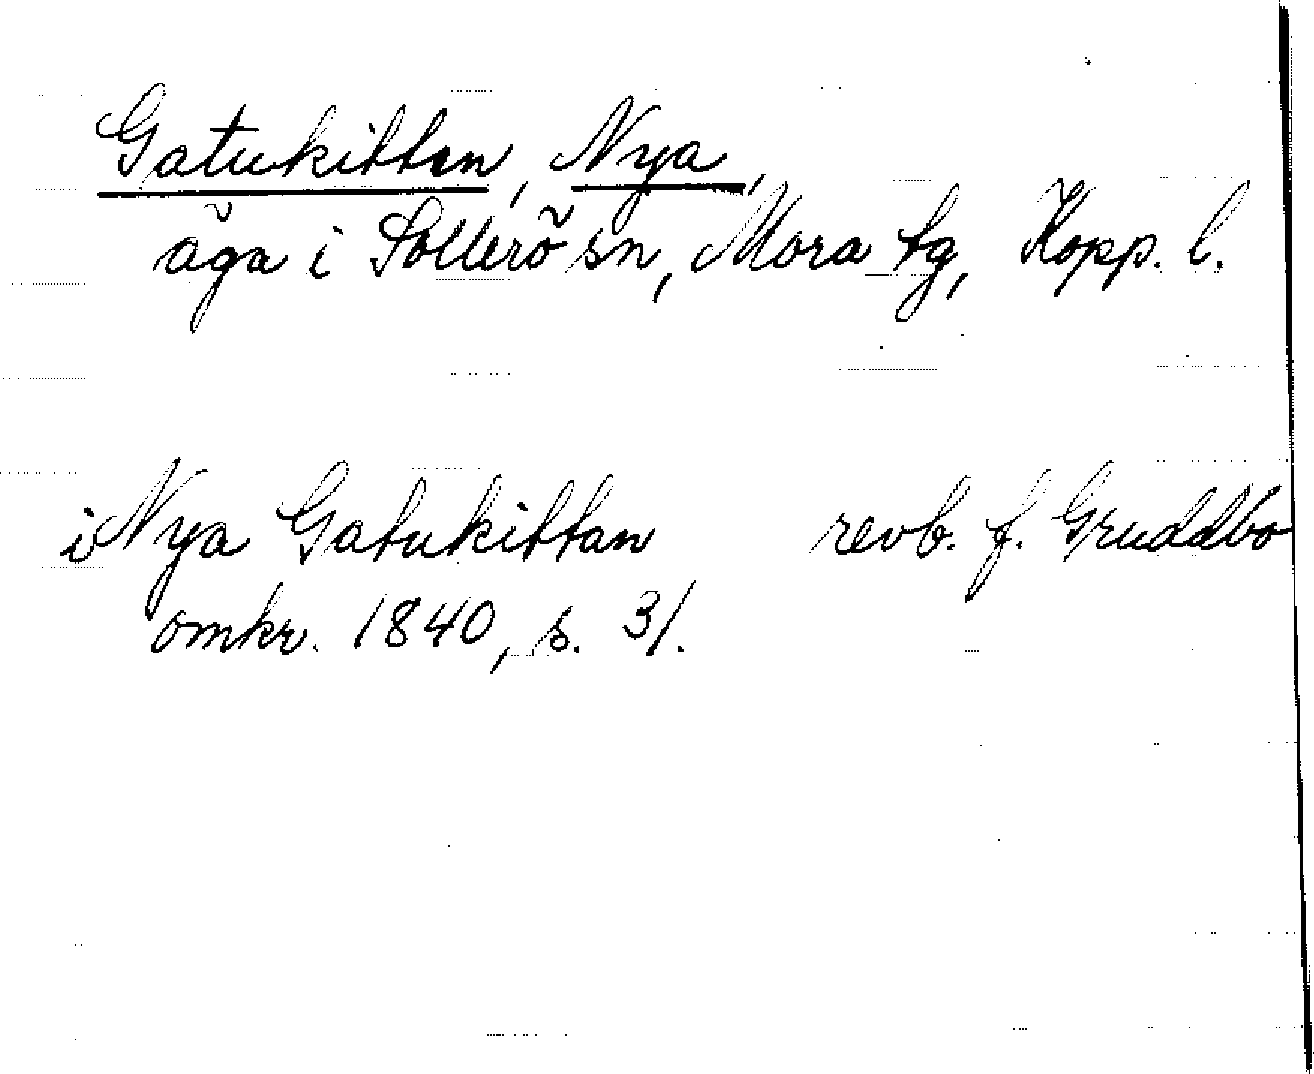 Gatukittan, Nya,
äga i Sollerö sn, Mora tg, Kopp. l.
i Nya Gatukittan revb. f. Gruddbo
omkr. 1840, s. 31.